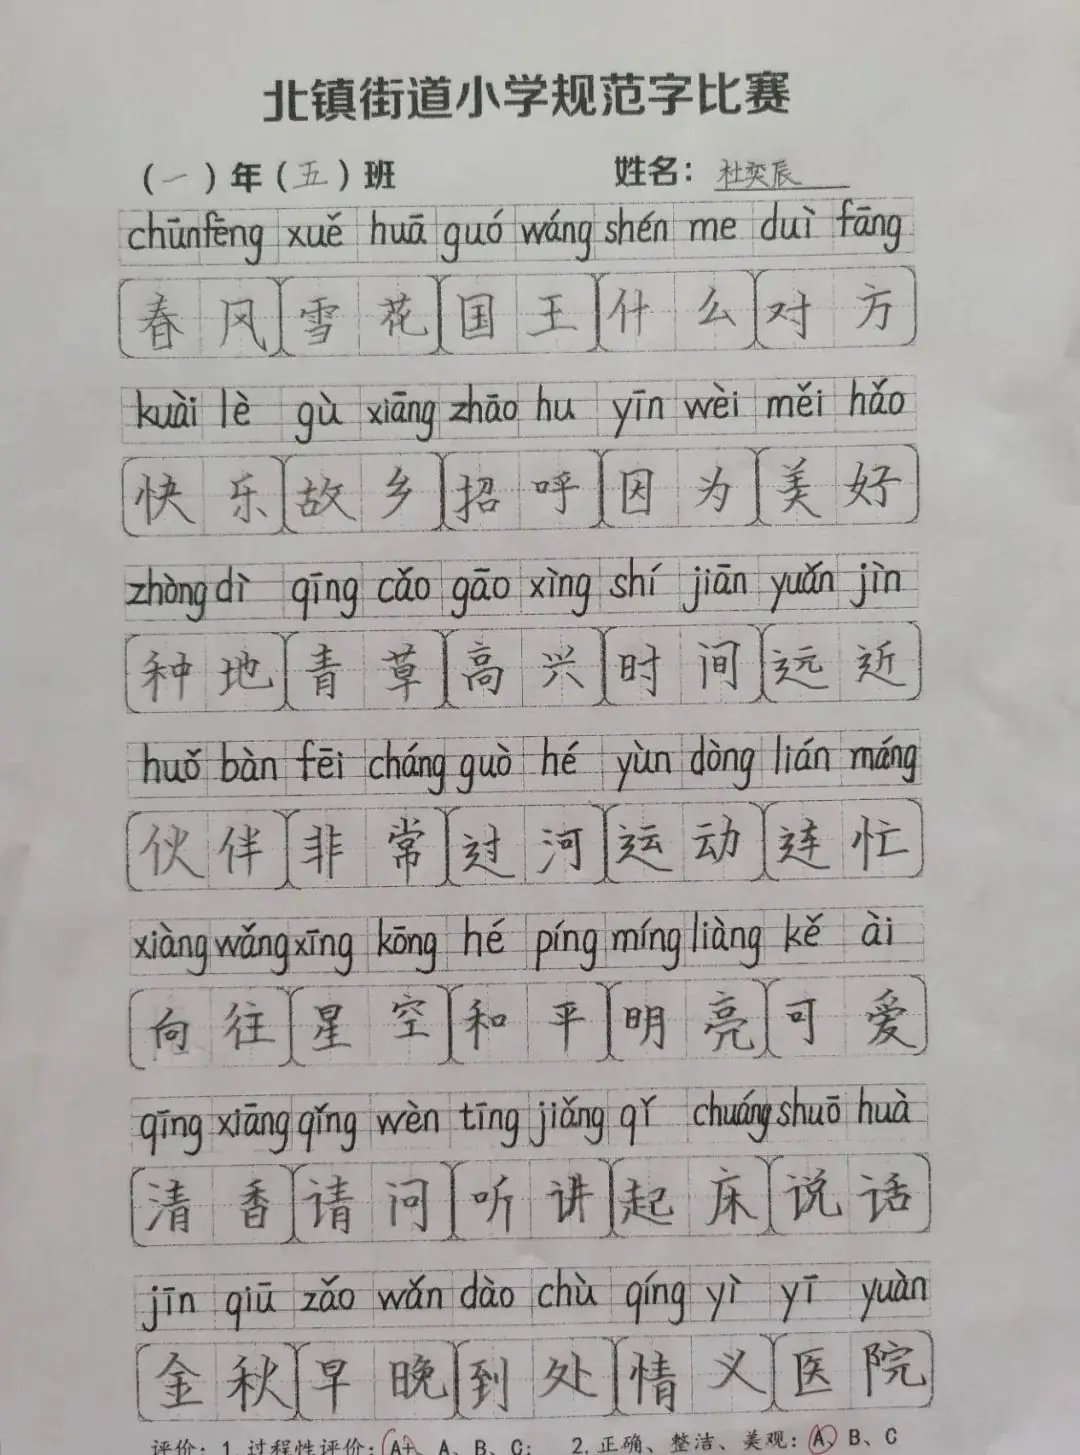 北镇街道小学规范字比赛
（一）年（五）班 姓名：杜奕辰
chūn fēng xuě huā guó wáng shén me duì fāng
春风 雪花 国王 什么 对方
kuài lè gù xiāng zhāo hu yīn wèi měi hǎo
快乐 故乡 招呼 因为 美好
zhòng dì qīng cǎo gāo xìng shí jiān yuǎn jìn
种地 青草 高兴 时间 远近
huǒ bàn fēi cháng guò hé yùn dòng lián máng
伙伴 非常 过河 运动 连忙
xiàng wǎng xīng kōng hé píng míng liàng kě ài
向往 星空 和平 明亮 可爱
qīng xiāng qǐng wèn tīng jiǎng qǐ chuáng shuō huà
清香 请问 听讲 起床 说话
jīn qiū zǎo wǎn dào chù qíng yì yī yuàn
金秋 早晚 到处 情义 医院
评价：1.过程性评价：A+、A、B、C； 2.正确、整洁、美观：A、B、C